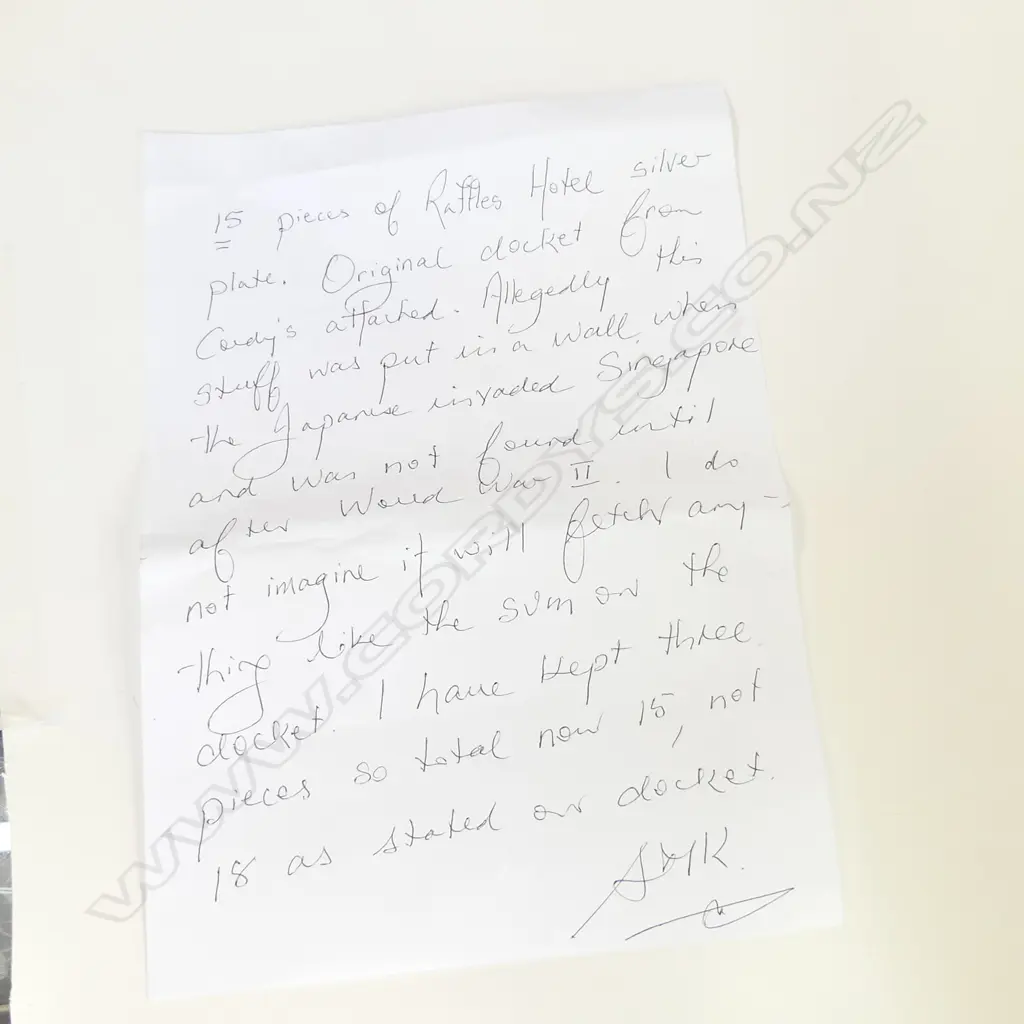 15 pieces of Raffles Hotel silver
plate. Original docket from
Cordy's attached. Allegedly this
stuff was put in a wall when
the Japanese invaded Singapore
and was not found until
after World War II. I do
not imagine it will fetch any-
thing like the sum on the
docket. I have kept three
pieces so total now 15, not
18 as stated on docket.
WWW.CORDYS.CO.NZ